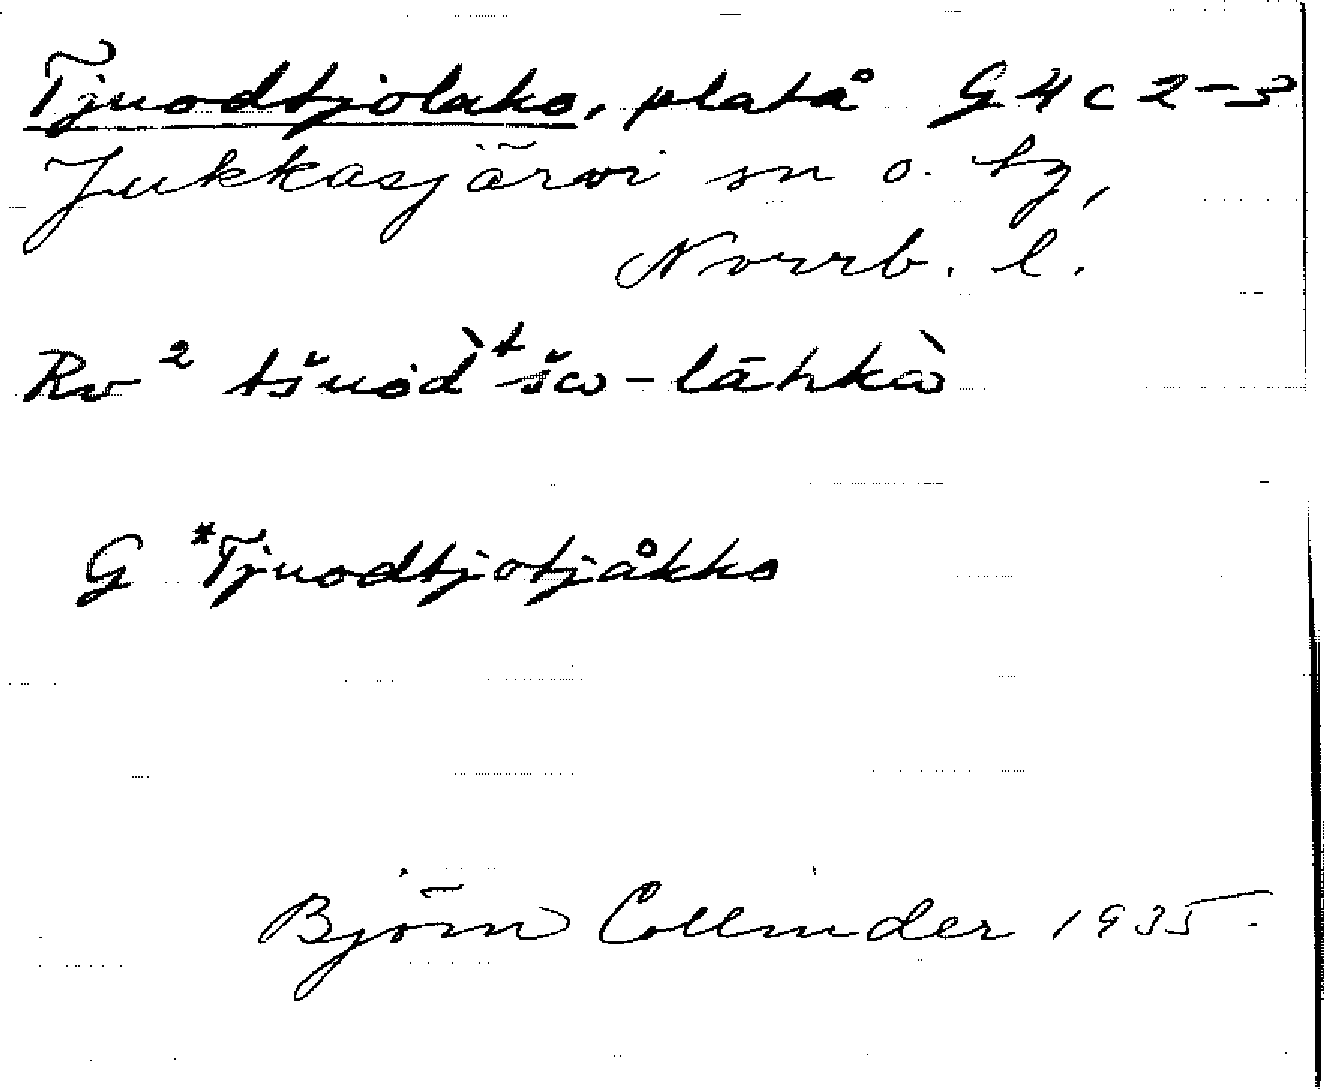 Tjuodtjolako, platå G 4 c 2-3
Jukkasjärvi sn o. tg,
Norrb. l.
Rv² tšuòd̀ᵗšω-lāhkὼ
G *Tjuodtjotjåkko
Björn Collinder 1935.